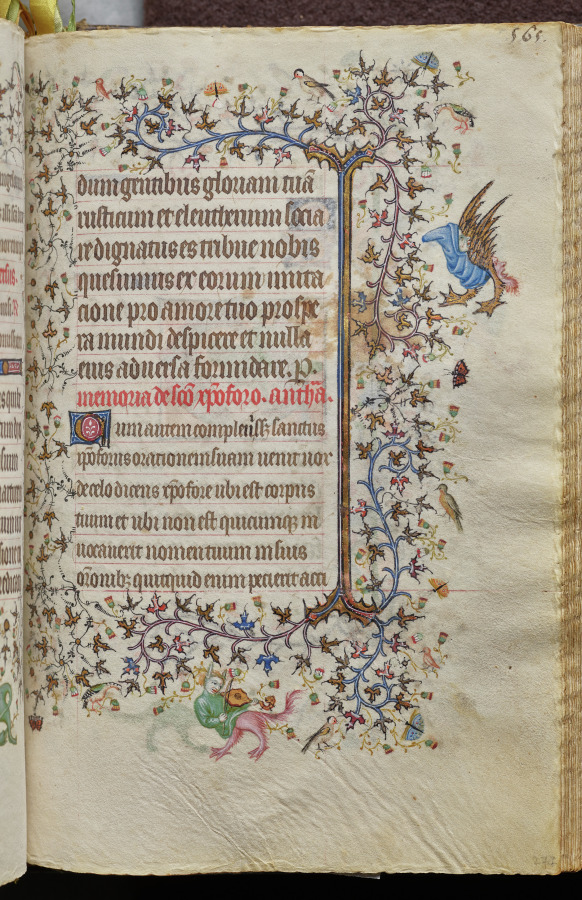 565
dum gentibus gloriam tuā
rusticum et eleutherium socia
re dignatus es tribue nobis
quesumus ex eorum imita
cione pro amore tuo prospe
ra mundi despicere et nulla
eius aduersa formidare. P.
memoria de sc̄o xp̄oforo. antħa.
Cum autem compleuiss; sanctus
xp̄oforus orationem suam uenit uox
de celo dicens xp̄ofore ubi est corpus
tuum et ubi non est quicumq; in
uocauerit nomen tuum in suis
or̄onib; quitquid enim pecierit acci
272